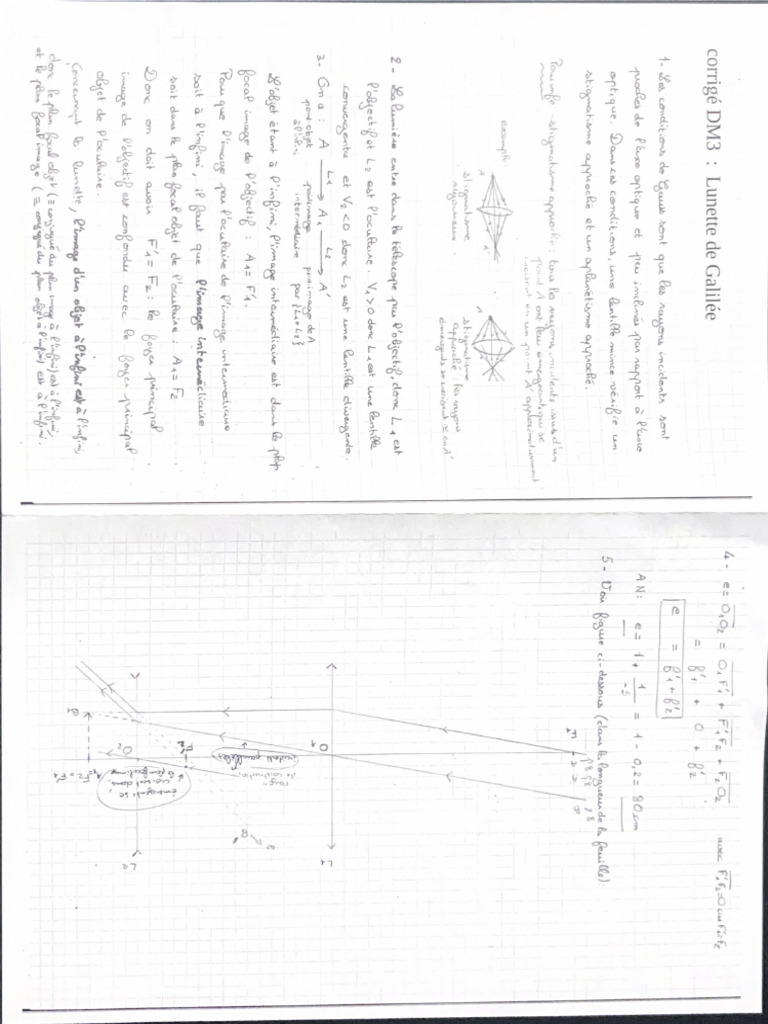 corrigé DM3 : Lunette de Galilée
1- Les conditions de Gauss sont que les rayons incidents sont
proches de l'axe optique et peu inclinés par rapport à l'axe
optique. Dans ces conditions, une lentille mince vérifie un
stigmatisme approché et un aplanétisme approché.
Pour info : stigmatisme approché : tous les rayons incidents issus d'un
point A ont leur émergent qui se
croisent en un point A' approximativement
exemple
A
A'
stigmatisme
rigoureux.
A
stigmatisme
approché : les rayons
émergents se croisent ≃ en A'
2 - La lumière entre dans le télescope par l'objectif, donc L1 est
l'objectif et L2 est l'oculaire. V1>0 donc L1 est une lentille
convergente et V2<0 donc L2 est une lentille divergente.
3- On a : A L1 → A1 L2 → A'
point objet
à l'infini
point image
intermédiaire
point image de A
par {L1+L2}
L'objet étant à l'infini, l'image intermédiaire est dans le plan
focal image de l'objectif : A1 = F'1.
Pour que l'image par l'oculaire de l'image intermédiaire
soit à l'infini, il faut que l'image intermédiaire
soit dans le plan focal objet de l'oculaire : A1 = F2
Donc on doit avoir F'1 = F2 : le foyer principal
image de l'objectif est confondu avec le foyer principal
objet de l'oculaire.
Concernant la lunette, l'image d'un objet à l'infini est à l'infini,
donc le plan focal objet (≡ conjugué du plan image à l'infini) est à l'infini,
et le plan focal image (≡ conjugué du plan objet à l'infini) est à l'infini.
4- e = O1O2 = O1F'1 + F'1F2 + F2O2 avec F'1F2 = 0 car F'1=F2
= f'1 + 0 + f'2
e = f'1 + f'2
AN : e = 1 + 1/-5 = 1 - 0,2 = 80 cm
5- Voir figure ci-dessous (dans la longueur de la feuille)
B∞
O1
L1
O2
L2
F'1 = F2
F'2